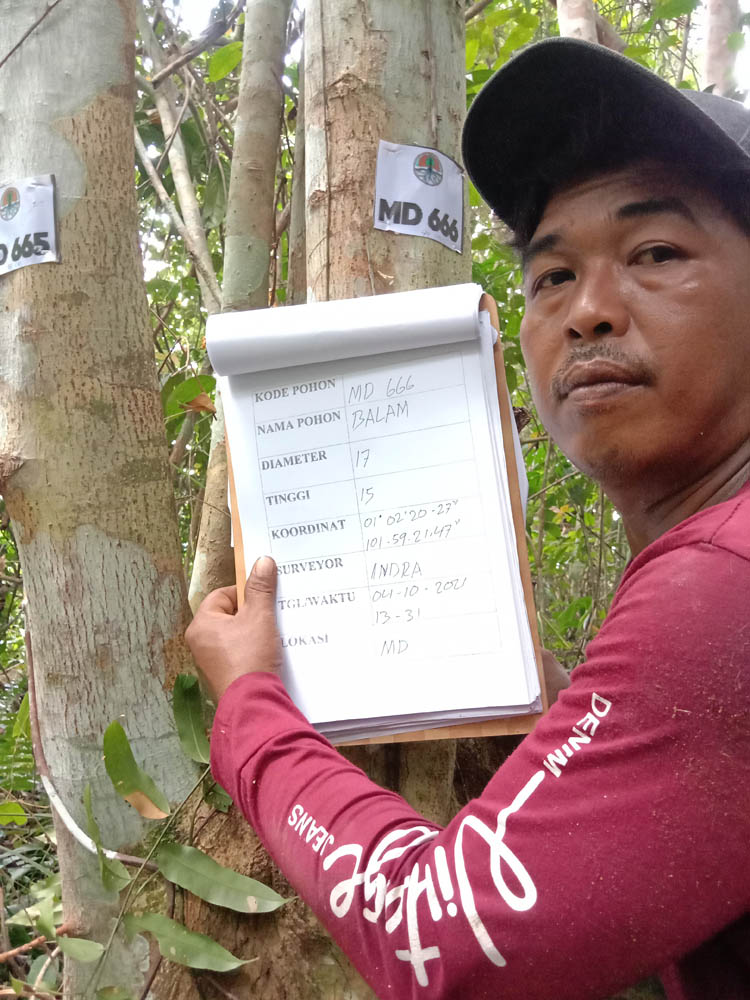 D 665
MD 666
KODE POHON MD 666
NAMA POHON BALAM
DIAMETER 17
TINGGI 15
KOORDINAT 01° 02' 20.27"
101.59.21.47"
SURVEYOR INDRA
TGL/WAKTU 04-10-2021
13-31
LOKASI MD
DENIM
Vintage
JEANS